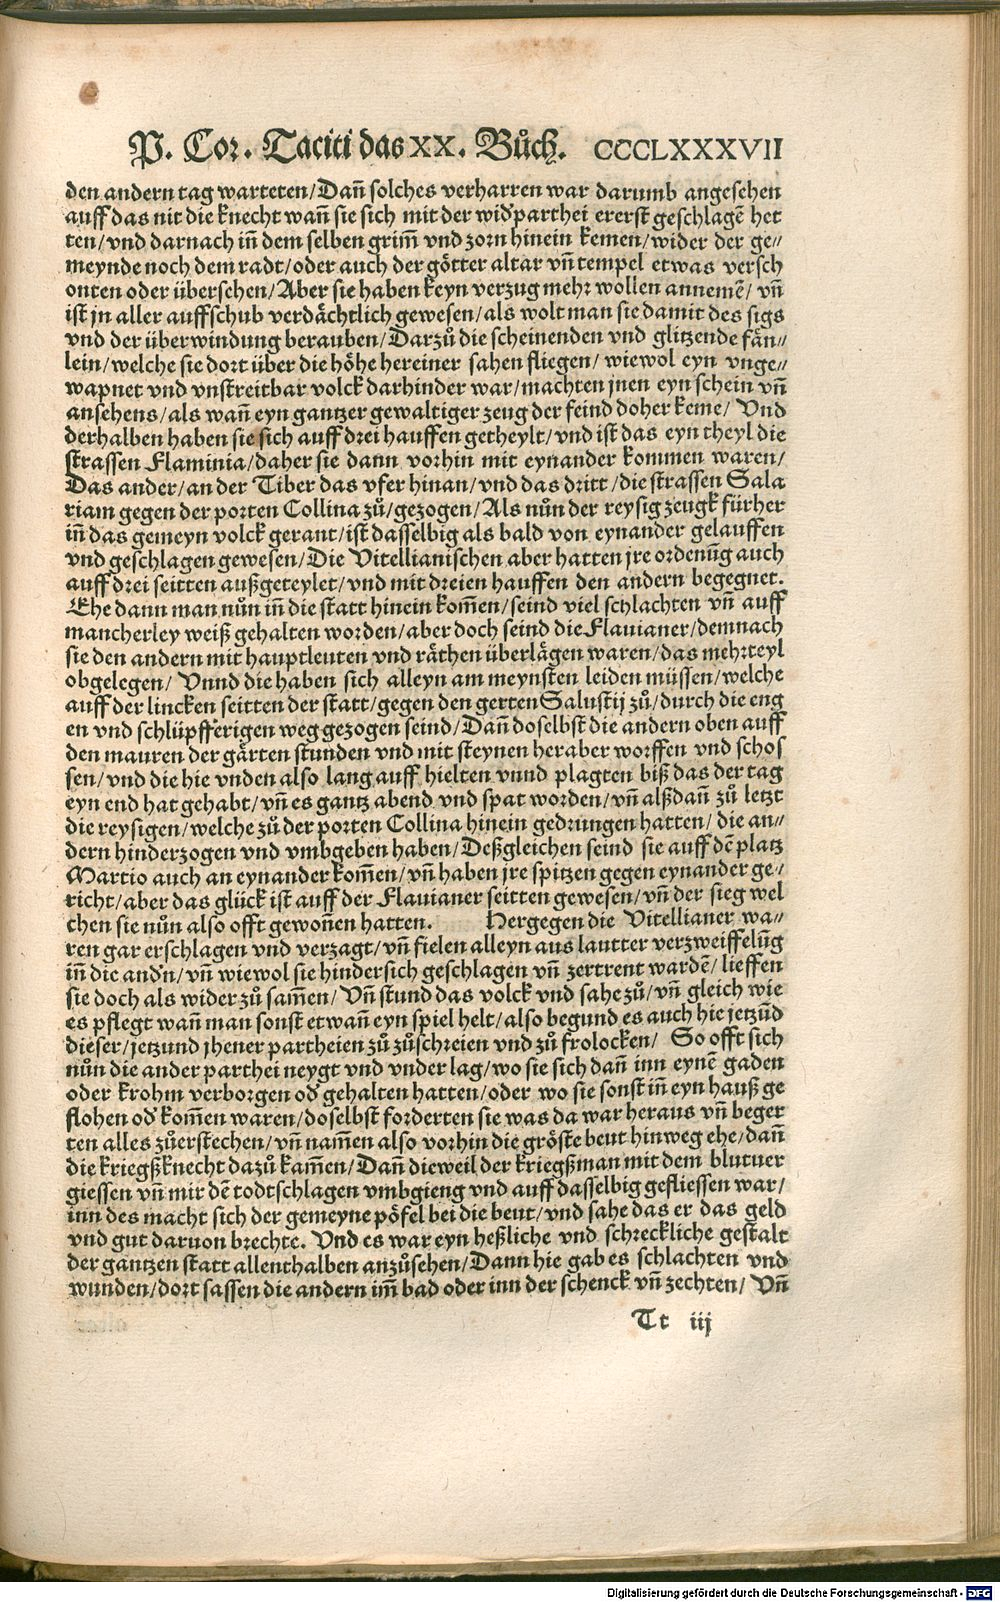 P. Cor. Taciti das XX. Bůch. CCCLXXXVII
den andern tag warteten/Dañ solches verharren war darumb angesehen
auff das nit die knecht wañ sie sich mit der wiďparthei ererst geschlagē het
ten/vnd darnach iñ dem selben grim̃ vnd zorn hinein kemen/wider der ge⸗
meynde noch dem radt/oder auch der götter altar vñ tempel etwas versch
onten oder übersehen/Aber sie haben keyn verzug mehr wollen annemē/ vñ
ist jn aller auffschub verdächtlich gewesen/als wolt man sie damit des sigs
vnd der überwindung berauben/Darzů die scheinenden vnd glitzende fän⸗
lein/welche sie dort über die höhe hereiner sahen fliegen/ wiewol eyn vnge⸗
wapnet vnd vnstreitbar volck darhinder war/machten jnen eyn schein vñ
ansehens/als wañ eyn gantzer gewaltiger zeug der feind doher keme/ Vnd
derhalben haben sie sich auff drei hauffen getheylt/vnd ist das eyn theyl die
strassen Flaminia/daher sie dann vorhin mit eynander kommen waren/
Das ander/an der Tiber das vfer hinan/vnd das dritt/die strassen Sala
riam gegen der porten Collina zů/gezogen/Als nůn der reysig zeugk fürher
iñ das gemeyn volck gerant/ist dasselbig als bald von eynander gelauffen
vnd geschlagen gewesen/Die Vitellianischen aber hatten jre ordenũg auch
auff drei seitten außgeteylet/vnd mit dreien hauffen den andern begegnet.
Ehe dann man nůn iñ die statt hinein kom̃en/seind viel schlachten vñ auff
mancherley weiß gehalten worden/aber doch seind die Flauianer/demnach
sie den andern mit hauptleuten vnd räthen überlägen waren/das mehrteyl
obgelegen/ Vnnd die haben sich alleyn am meynsten leiden müssen/welche
auff der lincken seitten der statt/gegen den gerten Salustij zů/durch die eng
en vnd schlüpfferigen weg gezogen seind/Dañ doselbst die andern oben auff
den mauren der gärten stunden vnd mit steynen heraber worffen vnd schos
sen/vnd die hie vnden also lang auff hielten vnnd plagten biß das der tag
eyn end hat gehabt/vñ es gantz abend vnd spat worden/vñ alßdañ zů letzt
die reysigen/welche zů der porten Collina hinein gedrungen hatten/ die an⸗
dern hinderzogen vnd vmbgeben haben/Deßgleichen seind sie auff dē platz
Martio auch an eynander kom̃en/vñ haben jre spitzen gegen eynander ge⸗
richt/aber das glück ist auff der Flauianer seitten gewesen/vñ der sieg wel
chen sie nůn also offt gewoñen hatten. Hergegen die Vitellianer wa⸗
ren gar erschlagen vnd verzagt/vñ fielen alleyn aus lautter verzweiffelũg
iñ die anďn/vñ wiewol sie hindersich geschlagen vñ zertrent wardē/lieffen
sie doch als wider zů sam̃en/Vñ stund das volck vnd sahe zů/vñ gleich wie
es pflegt wañ man sonst etwañ eyn spiel helt/also begund es auch hie jetzũd
dieser/jetzund jhener partheien zů zůschreien vnd zů frolocken/ So offt sich
nůn die ander parthei neygt vnd vnder lag/wo sie sich dañ inn eynē gaden
oder krohm verborgen oď gehalten hatten/oder wo sie sonst iñ eyn hauß ge
flohen oď kom̃en waren/doselbst forderten sie was da war heraus vñ beger
ten alles zůerstechen/vñ nam̃en also vorhin die gröste beut hinweg ehe/dañ
die kriegßknecht dazů kam̃en/Dañ dieweil der kriegßman mit dem blutuer
giessen vñ mir dē todtschlagen vmbgieng vnd auff dasselbig gefliessen war/
inn des macht sich der gemeyne pöfel bei die beut/vnd sahe das er das geld
vnd gut daruon brechte. Vnd es war eyn heßliche vnd schreckliche gestalt
der gantzen statt allenthalben anzůsehen/Dann hie gab es schlachten vnd
wunden/dort sassen die andern im̃ bad oder inn der schenck vñ zechten/ Vñ
Tt iij
Digitalisierung gefördert durch die Deutsche Forschungsgemeinschaft - DFG